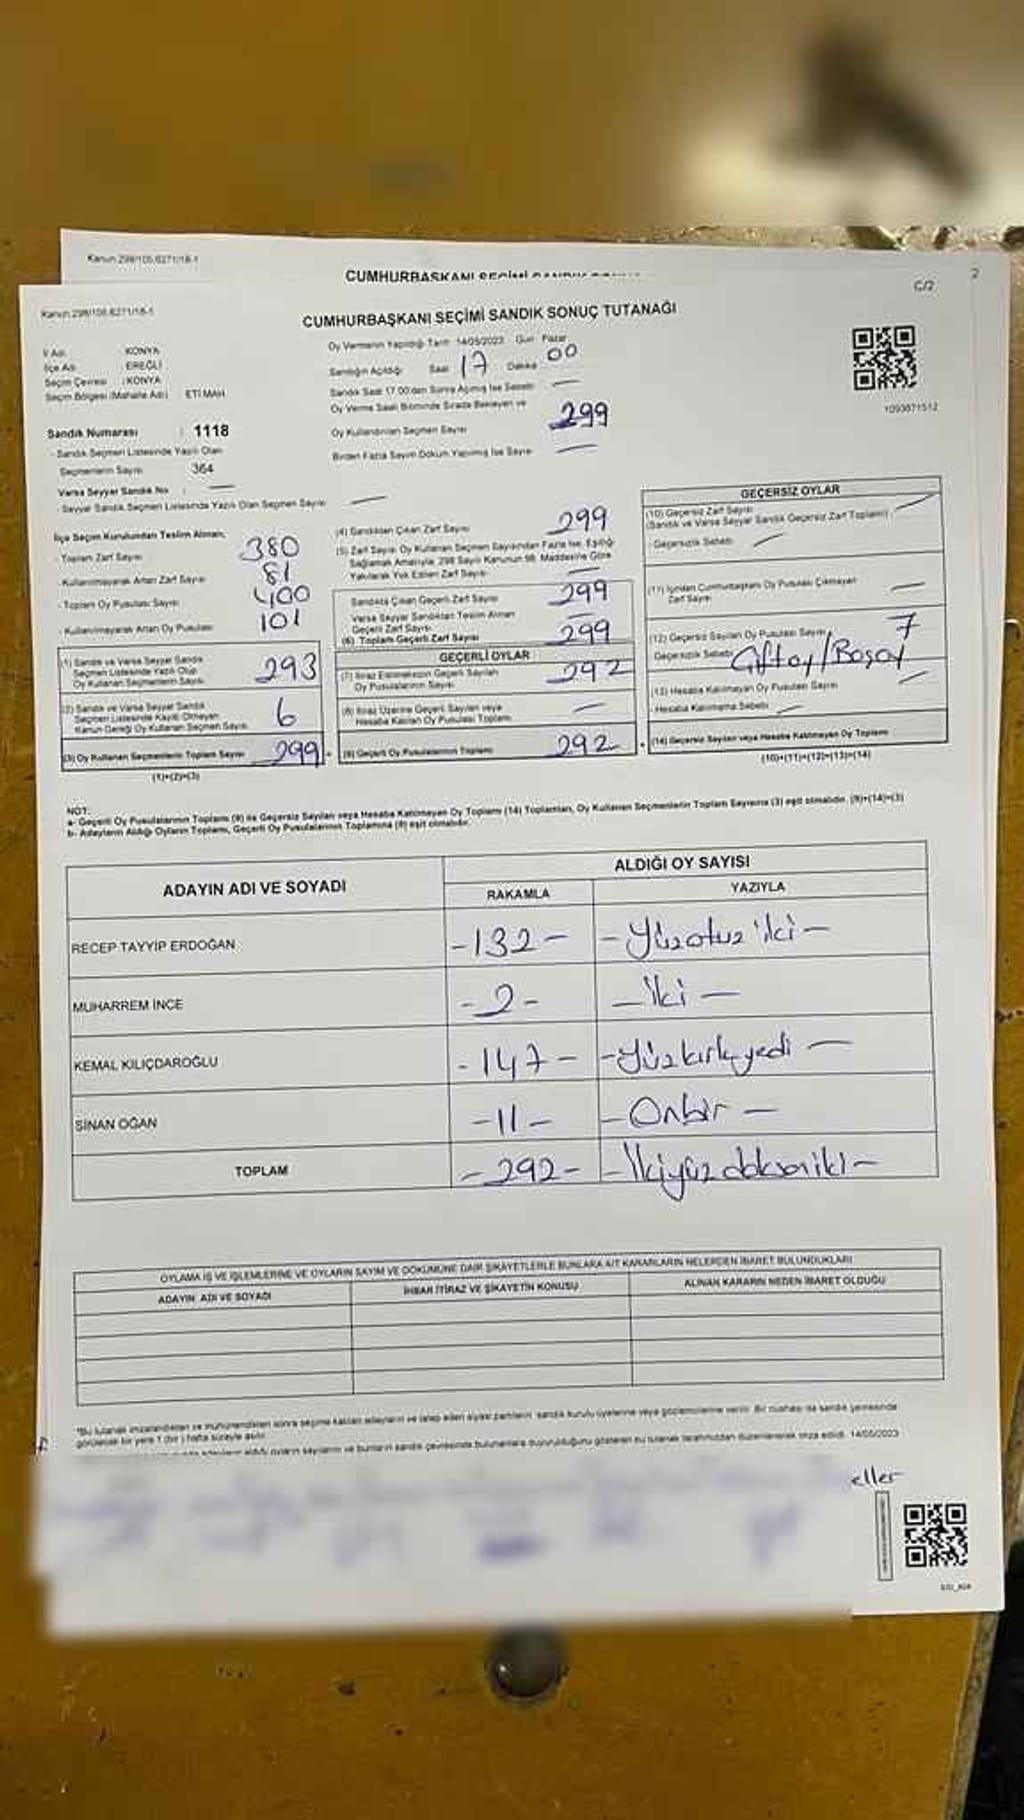 Kanun 298/105,6271/18-1
CUMHURBAŞKANI SEÇİMİ
2
C/2
Kanun 298/105,6271/18-1
CUMHURBAŞKANI SEÇİMİ SANDIK SONUÇ TUTANAĞI
İl Adı : KONYA
İlçe Adı : EREĞLİ
Seçim Çevresi : KONYA
Seçim Bölgesi (Mahalle Adı) : ETİ MAH
Sandık Numarası : 1118
- Sandık Seçmen Listesinde Yazılı Olan
Seçmenlerin Sayısı : 364
Varsa Seyyar Sandık No : —
- Seyyar Sandık Seçmen Listesinde Yazılı Olan Seçmen Sayısı : —
Oy Vermenin Yapıldığı Tarih: 14/05/2023 Gün: Pazar
Sandığın Açıldığı Saat 17 Dakika 00
Sandık Saat 17.00'den Sonra Açılmış İse Sebebi: —
Oy Verme Saati Bitiminde Sırada Bekleyen ve
Oy Kullandırılan Seçmen Sayısı 299
Birden Fazla Sayım Döküm Yapılmış İse Sayısı —
1093871512
İlçe Seçim Kurulundan Teslim Alınan,
- Toplam Zarf Sayısı 380
- Kullanılmayarak Artan Zarf Sayısı 81
- Toplam Oy Pusulası Sayısı 400
- Kullanılmayarak Artan Oy Pusulası 101
(1) Sandık ve Varsa Seyyar Sandık
Seçmen Listesinde Yazılı Olup
Oy Kullanan Seçmenlerin Sayısı 293
(2) Sandık ve Varsa Seyyar Sandık
Seçmen Listesinde Kayıtlı Olmayan
Kanun Gereği Oy Kullanan Seçmen Sayısı 6
(3) Oy Kullanan Seçmenlerin Toplam Sayısı 299
(1)+(2)=(3)
(4) Sandıktan Çıkan Zarf Sayısı 299
(5) Zarf Sayısı Oy Kullanan Seçmen Sayısından Fazla İse, Eşitliği
Sağlamak Amacıyla, 298 Sayılı Kanunun 98. Maddesine Göre
Yakılarak Yok Edilen Zarf Sayısı —
Sandıkta Çıkan Geçerli Zarf Sayısı 299
Varsa Seyyar Sandıktan Teslim Alınan
Geçerli Zarf Sayısı —
(6) Toplam Geçerli Zarf Sayısı 299
GEÇERLİ OYLAR
(7) İtiraz Edilmeksizin Geçerli Sayılan
Oy Pusulalarının Sayısı 292
(8) İtiraz Üzerine Geçerli Sayılan veya
Hesaba Katılan Oy Pusulası Toplamı —
(9) Geçerli Oy Pusulalarının Toplamı 292
GEÇERSİZ OYLAR
(10) Geçersiz Zarf Sayısı
(Sandık ve Varsa Seyyar Sandık Geçersiz Zarf Toplamı) —
- Geçersizlik Sebebi: —
(11) İçinden Cumhurbaşkanı Oy Pusulası Çıkmayan
Zarf Sayısı —
(12) Geçersiz Sayılan Oy Pusulası Sayısı 7
Geçersizlik Sebebi: Çiftoy/Boşoy
(13) Hesaba Katılmayan Oy Pusulası Sayısı —
- Hesaba Katılmama Sebebi: —
(14) Geçersiz Sayılan veya Hesaba Katılmayan Oy Toplamı
(10)+(11)+(12)+(13)=(14)
NOT:
a- Geçerli Oy Pusulalarının Toplamı (9) ile Geçersiz Sayılan veya Hesaba Katılmayan Oy Toplamı (14) Toplamları, Oy Kullanan Seçmenlerin Toplam Sayısına (3) eşit olmalıdır. (9)+(14)=(3)
b- Adayların Aldığı Oyların Toplamı, Geçerli Oy Pusulalarının Toplamına (9) eşit olmalıdır.
ADAYIN ADI VE SOYADI ALDIĞI OY SAYISI
RAKAMLA YAZIYLA
RECEP TAYYİP ERDOĞAN -132- -Yüzotuz iki-
MUHARREM İNCE -2- -İki-
KEMAL KILIÇDAROĞLU -147- -Yüzkırkyedi-
SİNAN OĞAN -11- -Onbir-
TOPLAM -292- -İkiyüz doksaniki-
OYLAMA İŞ VE İŞLEMLERİNE VE OYLARIN SAYIM VE DÖKÜMÜNE DAİR ŞİKAYETLERLE BUNLARA AİT KARARLARIN NELERDEN İBARET BULUNDUKLARI
ADAYIN ADI VE SOYADI İHBAR İTİRAZ VE ŞİKAYETİN KONUSU ALINAN KARARIN NEDEN İBARET OLDUĞU
*Bu tutanak imzalandıktan ve mühürlendikten sonra seçime katılan adayların ve talep eden siyasi partilerin sandık kurulu üyelerine veya gözlemcilerine verilir. Bir nüshası da sandık çevresinde
görülecek bir yere 1 (bir) hafta süreyle asılır.
adayların aldığı oyların sayılarını ve bunların sandık çevresinde bulunanlara duyurulduğunu gösteren bu tutanak tarafımızdan düzenlenerek imza edildi. 14/05/2023
eller